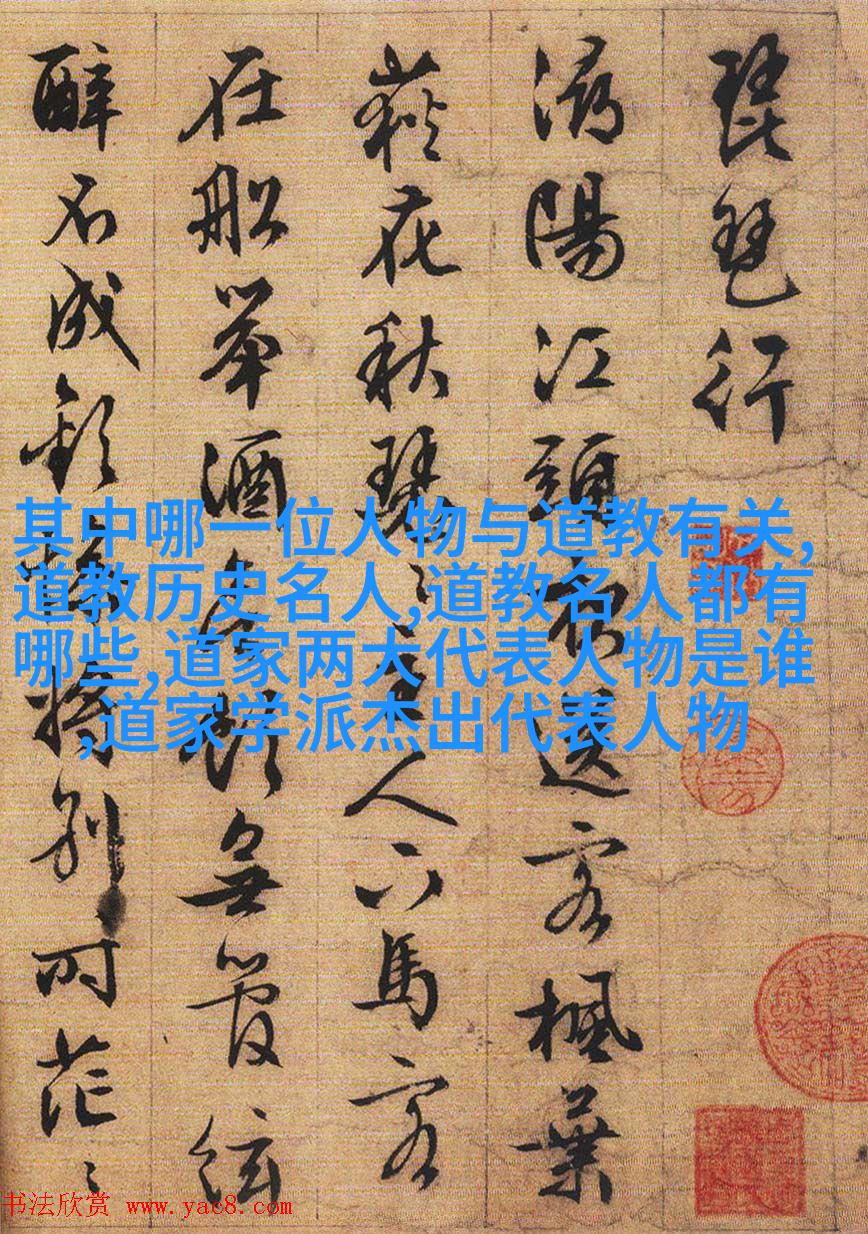 琵琶行
潯陽江頭夜送客楓葉
荻花秋瑟〻主人下馬客
在船举酒欲飲無管絃
醉不成歡慘將別時茫〻
其中哪一位人物与道教有关,
道教历史名人,道教名人都有
哪些,道家两大代表人物是谁
,道家学派杰出代表人物
书法欣赏 www.yac8.com